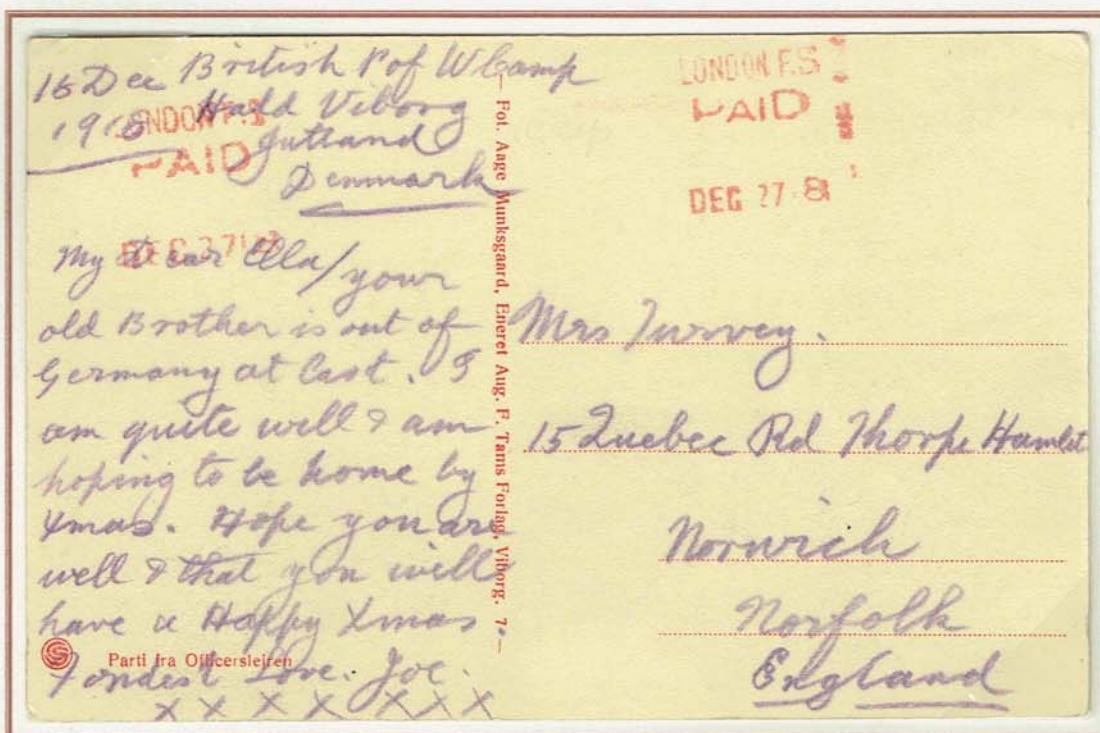 15 Dec
1918
British P of W Camp
Hald Viborg
Jutland
Denmark
LONDON F.S
PAID
My Dear Ella / your
old Brother is out of
Germany at last. I
am quite well & am
hoping to be home by
Xmas. Hope you are
well & that you will
have a Happy Xmas
Fondest Love. Joe.
x x x x x x x
Parti fra Officerslejren
— Fot. Aage Munksgaard, Eneret Aug. F. Tams Forlag, Viborg. 7. —
LONDON F.S
PAID
DEC 27 8
Mrs Turvey.
15 Quebec Rd Thorpe Hamlet
Norwich
Norfolk
England